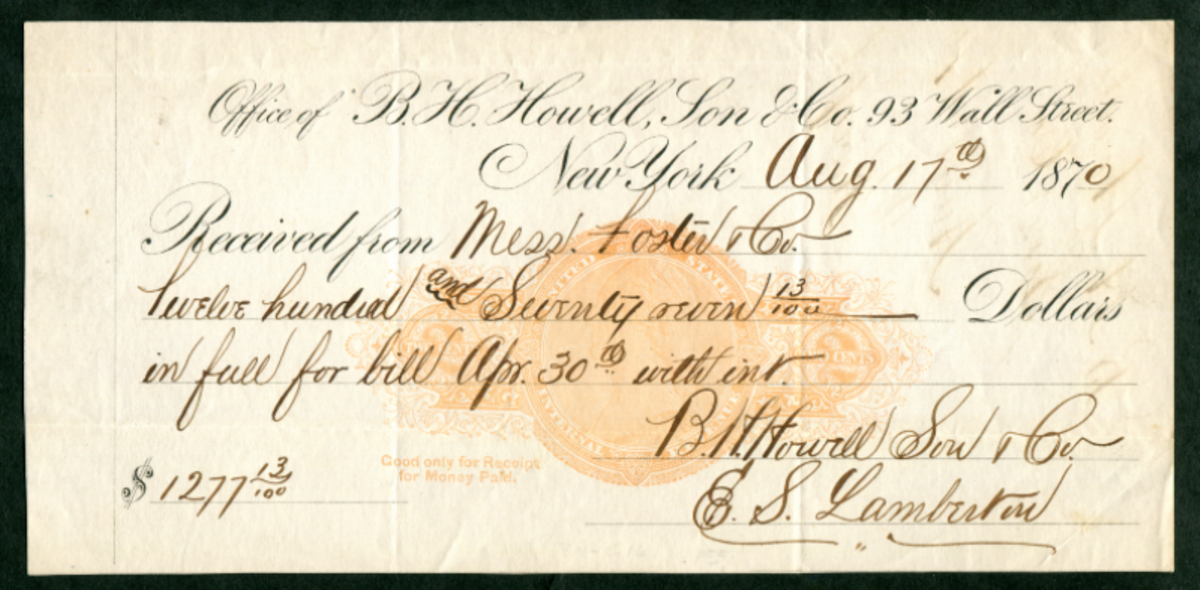 Office of B. H. Howell, Son & Co. 93 Wall Street.
New York Aug. 17th 1870
Received from Mess. Foster & Co.
Twelve hundred and Seventy seven 13/100 Dollars
in full for bill Apr. 30th with int.
B. H. Howell Son & Co
$ 1277 13/100
E. S. Lamberton
UNITED STATES
2 CENTS
INTERNAL REVENUE
Good only for Receipt
for Money Paid.